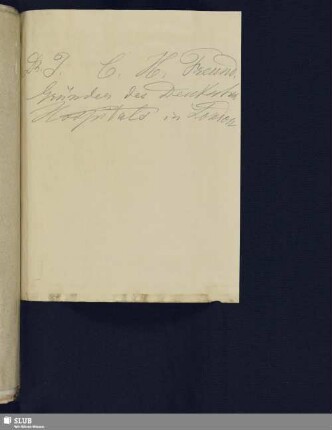 D. J. C. H. Freund,
Gründer des Deutschen
Hospitals in London
SLUB
Wir führen Wissen.